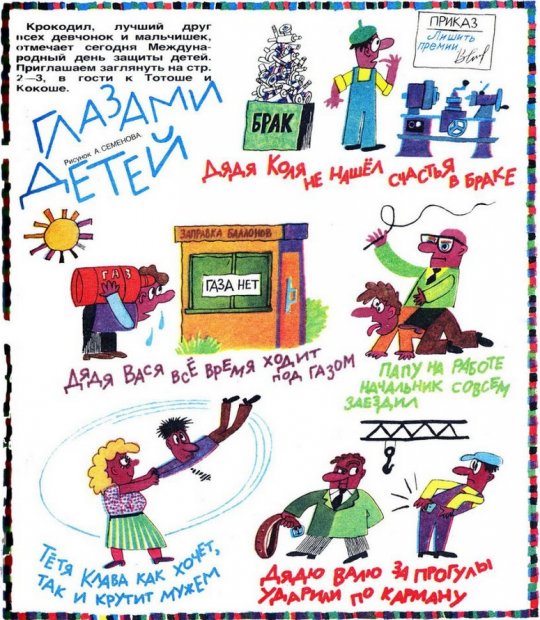 Крокодил, лучший друг
всех девчонок и мальчишек,
отмечает сегодня Междуна-
родный день защиты детей.
Приглашаем заглянуть на стр.
2—3, в гости к Тотоше и
Кокоше.
ГЛАЗАМИ
ДЕТЕЙ
Рисунок А. СЕМЕНОВА.
БРАК
ПРИКАЗ
Лишить
премии
ДЯДЯ КОЛЯ НЕ НАШЁЛ СЧАСТЬЯ
В БРАКЕ
ГАЗ
ЗАПРАВКА БАЛЛОНОВ
ГАЗА НЕТ
ДЯДЯ ВАСЯ ВСЁ ВРЕМЯ ХОДИТ
ПОД ГАЗОМ
ПАПУ НА РАБОТЕ
НАЧАЛЬНИК СОВСЕМ
ЗАЕЗДИЛ
ТЁТЯ КЛАВА КАК ХОЧЕТ,
ТАК И КРУТИТ МУЖЕМ
ДЯДЮ ВАЛЮ ЗА ПРОГУЛЫ
УДАРИЛИ ПО КАРМАНУ